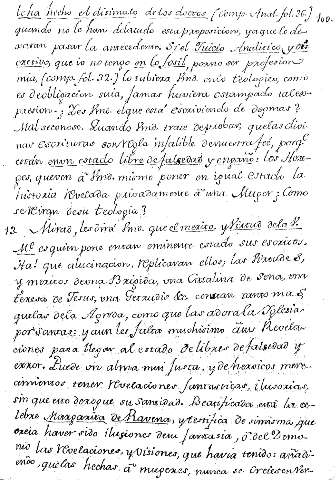 le ha hecho el disimulo de los doctos (Comp. Anal. fol. 36.)
100.
quando no le han delatado esta proposicion, ya que le de-
xaron pasar la antecedente. Si el Juicio Analitico, y
porno ser profesion
mia, (comp. fol. 32.) lo tubiera Pne. mas teologico, como
es de obligacion suia, jamas huviera estampado tal ex-
presion. Tres Pne. el que está escriviendo de dogmas?
Mal se conose. Quando Pne. trae de probar, que las divi-
nas Escrituras son regla infalible de nuestra fee, par
en un estado libre de falsedad y engaño:
pes, quieren á Pne. mismo poner en igual estado la
historia revelada privadamente á una Muger; Como
teologia?
12. Mirad, les dirá Pne. que el merito, y Virtud de la V.
Me. es quien pone en tan eminente estado sus escritos.
Ha! que alucinacion, replicaran ellos; las Virtudes,
y meritos de una Brigida, una Catalina de Sena, una
Teresa de Jesus, una Getrudis en constan tanto ma s
que las de la Agreda, como que las adora la Iglesia
por Santas: y aun les falta muchisimo á sus Revela-
ciones para llegar al estado de libres de falsedad y
error. Puede un alma mui justa, y de heroicos mere-
cimientos tener revelaciones fantasticas, ilusorias,
sin que esto derogue su santidad. Beatificada está la ce-
lebre Margarita de Ravena, y testifica de simisma, que
creia haver sido ilusiones de su fantasia, ó del Demo-
nio las revelaciones, y visiones, que havia tenido: añadi-
endo, que las hechas á mugeres, nunca se creiesen ver-